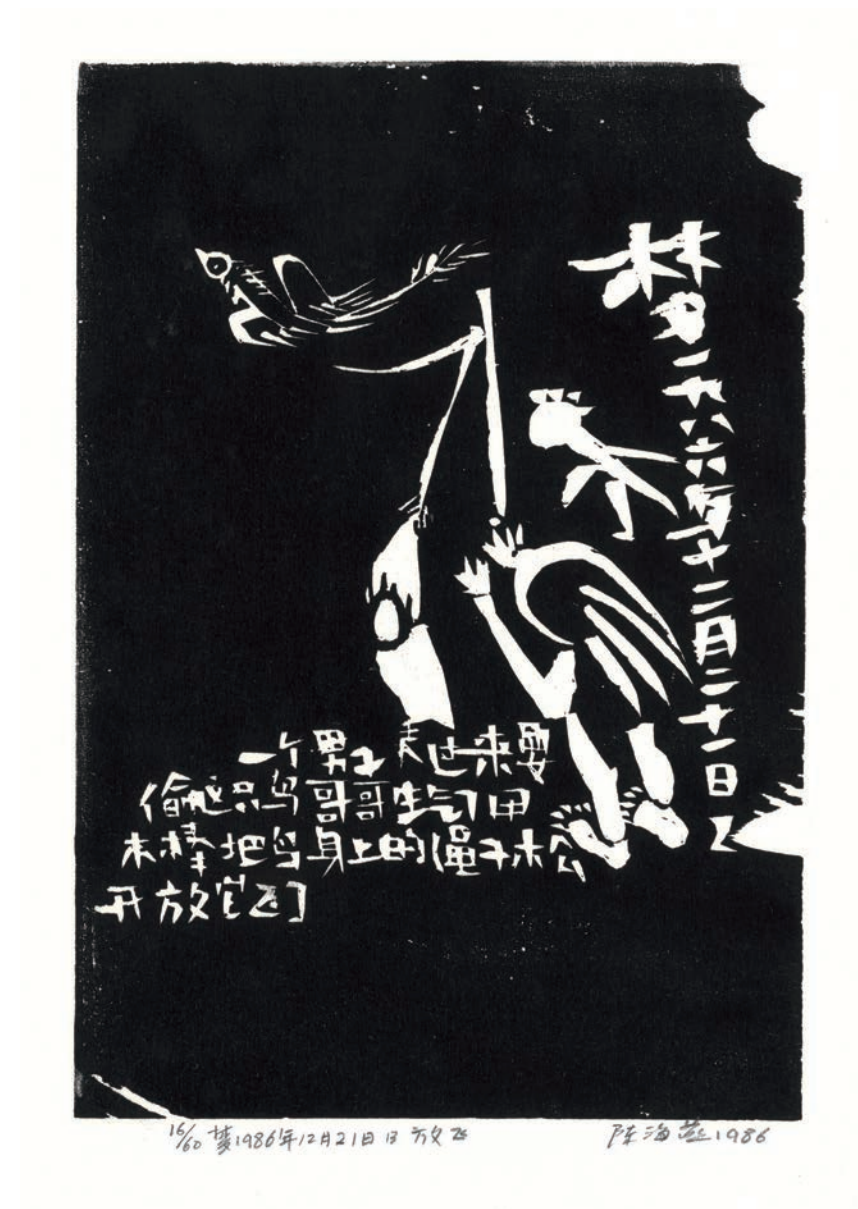 梦一九八六年十二月二十一日乙
一个男子走过来要
偷这只鸟哥哥生气用
木棒把鸟身上的绳子松
开放它飞了
16/60 梦1986年12月21日 B 放飞
陈海燕 1986